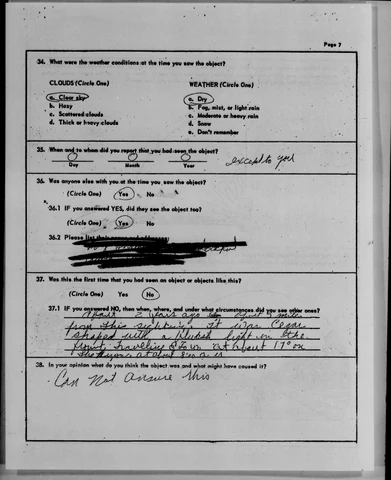 Page 7
34. What were the weather conditions at the time you saw the object?
CLOUDS (Circle One) WEATHER (Circle One)
a. Clear sky a. Dry
b. Hazy b. Fog, mist, or light rain
c. Scattered clouds c. Moderate or heavy rain
d. Thick or heavy clouds d. Snow
e. Don't remember
35. When and to whom did you report that you had seen the object?
0 0 0 except to you
Day Month Year
36. Was anyone else with you at the time you saw the object?
(Circle One) Yes No
36.1 IF you answered YES, did they see the object too?
(Circle One) Yes No
36.2 Please list their
37. Was this the first time that you had seen an object or objects like this?
(Circle One) Yes No
37.1 IF you answered NO, then when, where, and under what circumstances did you see other ones?
about 2 years ago miles
from this sighting. It was Cigar
shaped with a bluish light on the
front, travelling at about 17° on
the at about
38. In your opinion what do you think the object was and what might have caused it?
Can Not answer this